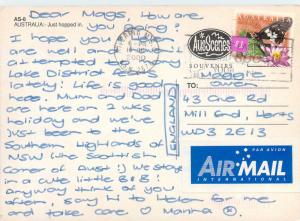 AS-6
AUSTRALIA: Just hopped in.
Dear Mags, How are
you doing?
I hope you
are well and
attempted any
Lake District
lately! Life is good
here. Mum and Dad
are here on 2 wks
holiday and we've
just been at the
Southern Highlands of
NSW
Corner of Aust'! We stayed
in a cute little B&B!
Anyway think of you
often, say hi to Helen for me
and take care ♡ Marina
2000
AusScenes
SOUVENIRS
AUSTRALIA
TO:
43 Ave Rd
Mill End, Herts
WD3 2E13
ENGLAND
PAR AVION
AIR MAIL
INTERNATIONAL